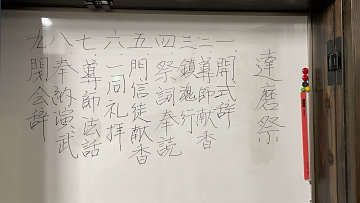 達磨祭
一、開式辞
二、尊師献香
三、鎮魂行
四、祭詞奉読
五、門信徒献香
六、一同礼拝
七、尊師法話
八、奉納演武
九、閉会辞